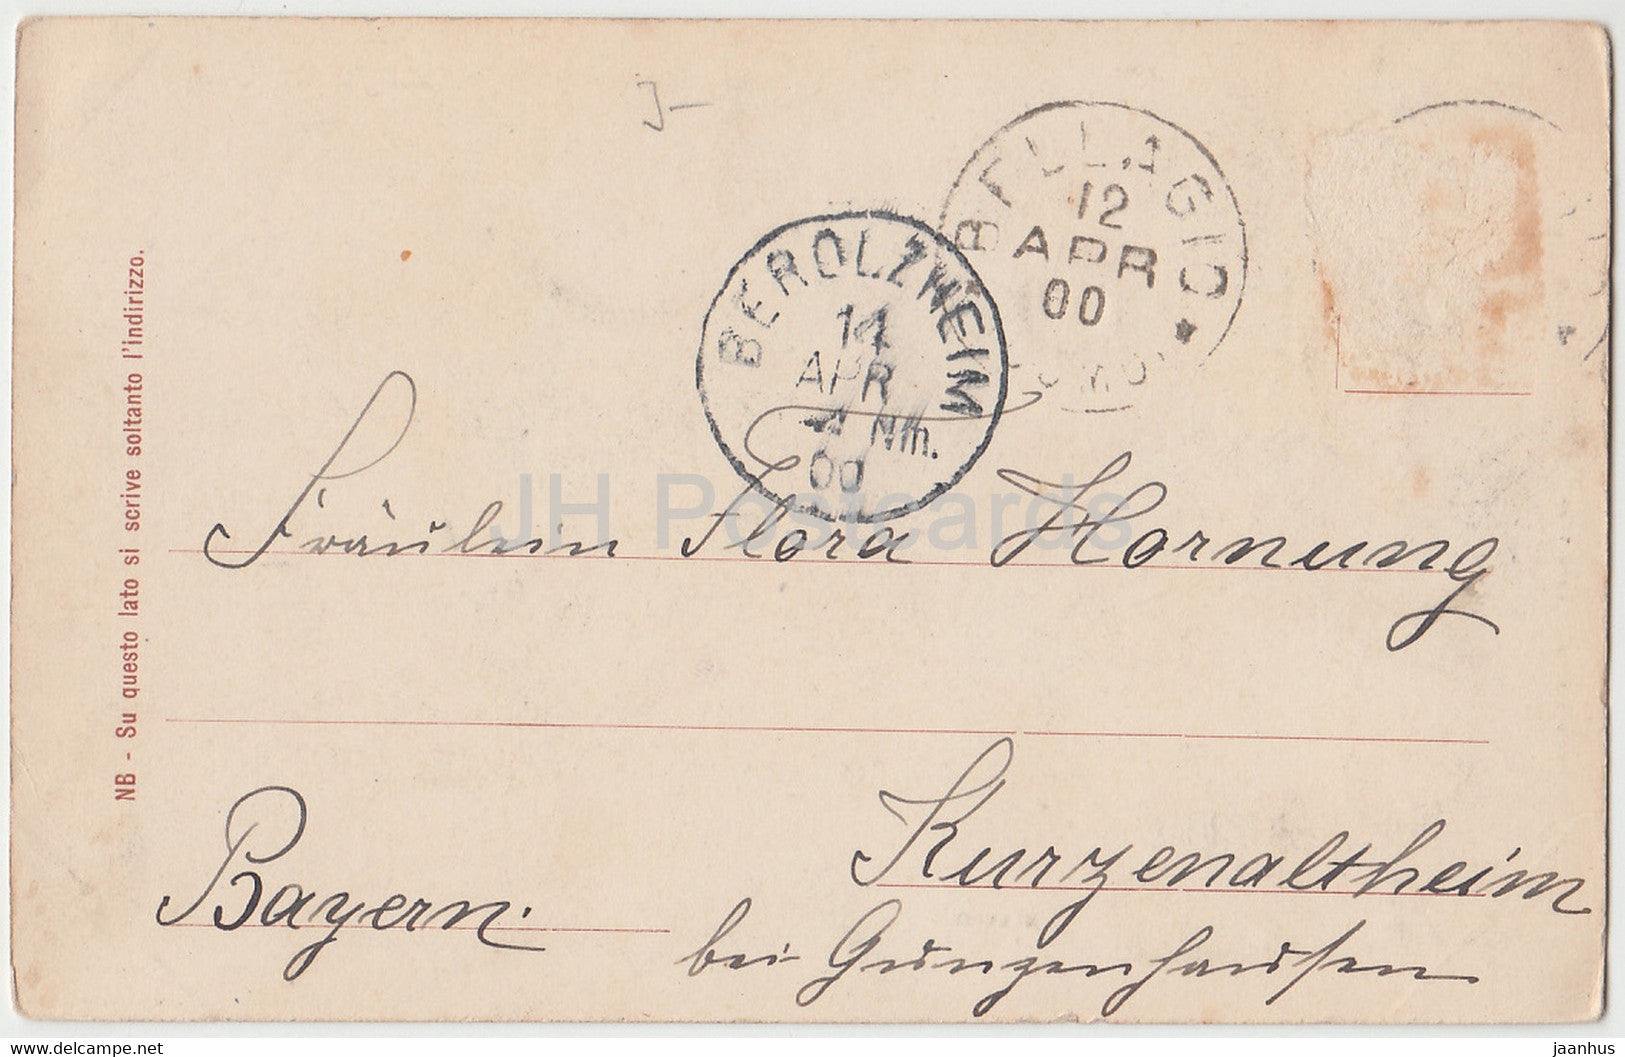 J-
BELLAGIO
12
APR
00
BEROLZHEIM
14
APR
Nm.
00
NB - Su questo lato si scrive soltanto l'indirizzo.
Fräulein Flora Hornung
JH Postcards
Kurzenaltheim
Bayern.
bei Gunzenhausen
delcampe.net
jaanhus